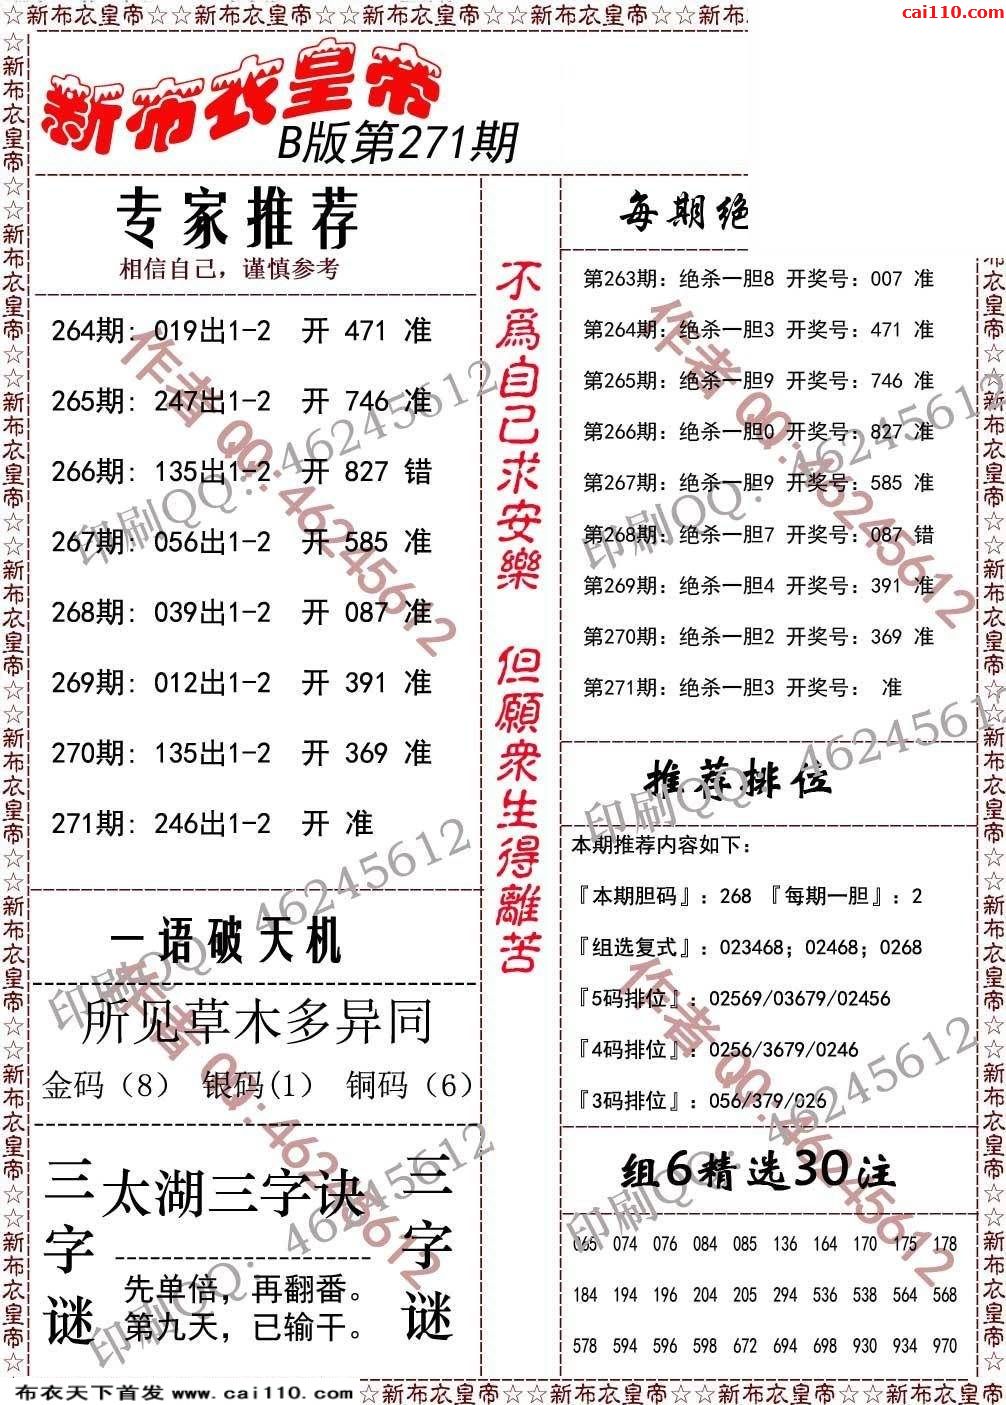 ☆新布衣皇帝☆☆新布衣皇帝☆☆新布衣皇帝☆☆新布衣皇帝☆☆新布
cai110.com
新布衣皇帝
B版第271期
专家推荐
相信自己，谨慎参考
264期: 019出1-2 开 471 准
265期: 247出1-2 开 746 准
266期: 135出1-2 开 827 错
267期: 056出1-2 开 585 准
268期: 039出1-2 开 087 准
269期: 012出1-2 开 391 准
270期: 135出1-2 开 369 准
271期: 246出1-2 开 准
一语破天机
所见草木多异同
金码（8） 银码(1） 铜码（6）
三字谜
太湖三字诀
先单倍，再翻番。
第九天，已输干。
三字谜
不爲自己求安樂 但願衆生得離苦
每期绝
第263期：绝杀一胆8 开奖号：007 准
第264期：绝杀一胆3 开奖号：471 准
第265期：绝杀一胆9 开奖号：746 准
第266期：绝杀一胆0 开奖号：827 准
第267期：绝杀一胆9 开奖号：585 准
第268期：绝杀一胆7 开奖号：087 错
第269期：绝杀一胆4 开奖号：391 准
第270期：绝杀一胆2 开奖号：369 准
第271期：绝杀一胆3 开奖号： 准
推荐排位
本期推荐内容如下：
『本期胆码』：268 『每期一胆』：2
『组选复式』：023468；02468；0268
『5码排位』：02569/03679/02456
『4码排位』：0256/3679/0246
『3码排位』：056/379/026
组6精选30注
065 074 076 084 085 136 164 170 175 178
184 194 196 204 205 294 536 538 564 568
578 594 596 598 672 694 698 930 934 970
作者 QQ：46245612
印刷QQ：46245612
作者 QQ：46245612
印刷QQ：46245612
印刷QQ：46245612
作者 QQ：46245612
印刷QQ：46245612
作者 QQ：46245612
印刷QQ：46245612
印刷QQ：46245612
☆新布衣皇帝☆☆新布衣皇帝☆☆新布衣皇帝☆☆新布衣皇帝☆☆新布衣皇帝☆☆新布衣皇帝☆☆新布衣皇帝☆☆新布衣皇帝☆
布衣皇帝☆☆新布衣皇帝☆☆新布衣皇帝☆☆新布衣皇帝☆☆新布衣皇帝☆☆新布衣皇帝☆☆新布衣皇帝☆
布衣天下首发 www.cai110.com ☆新布衣皇帝☆☆☆新布衣皇帝☆☆☆新布衣皇帝☆☆☆新布衣皇帝☆